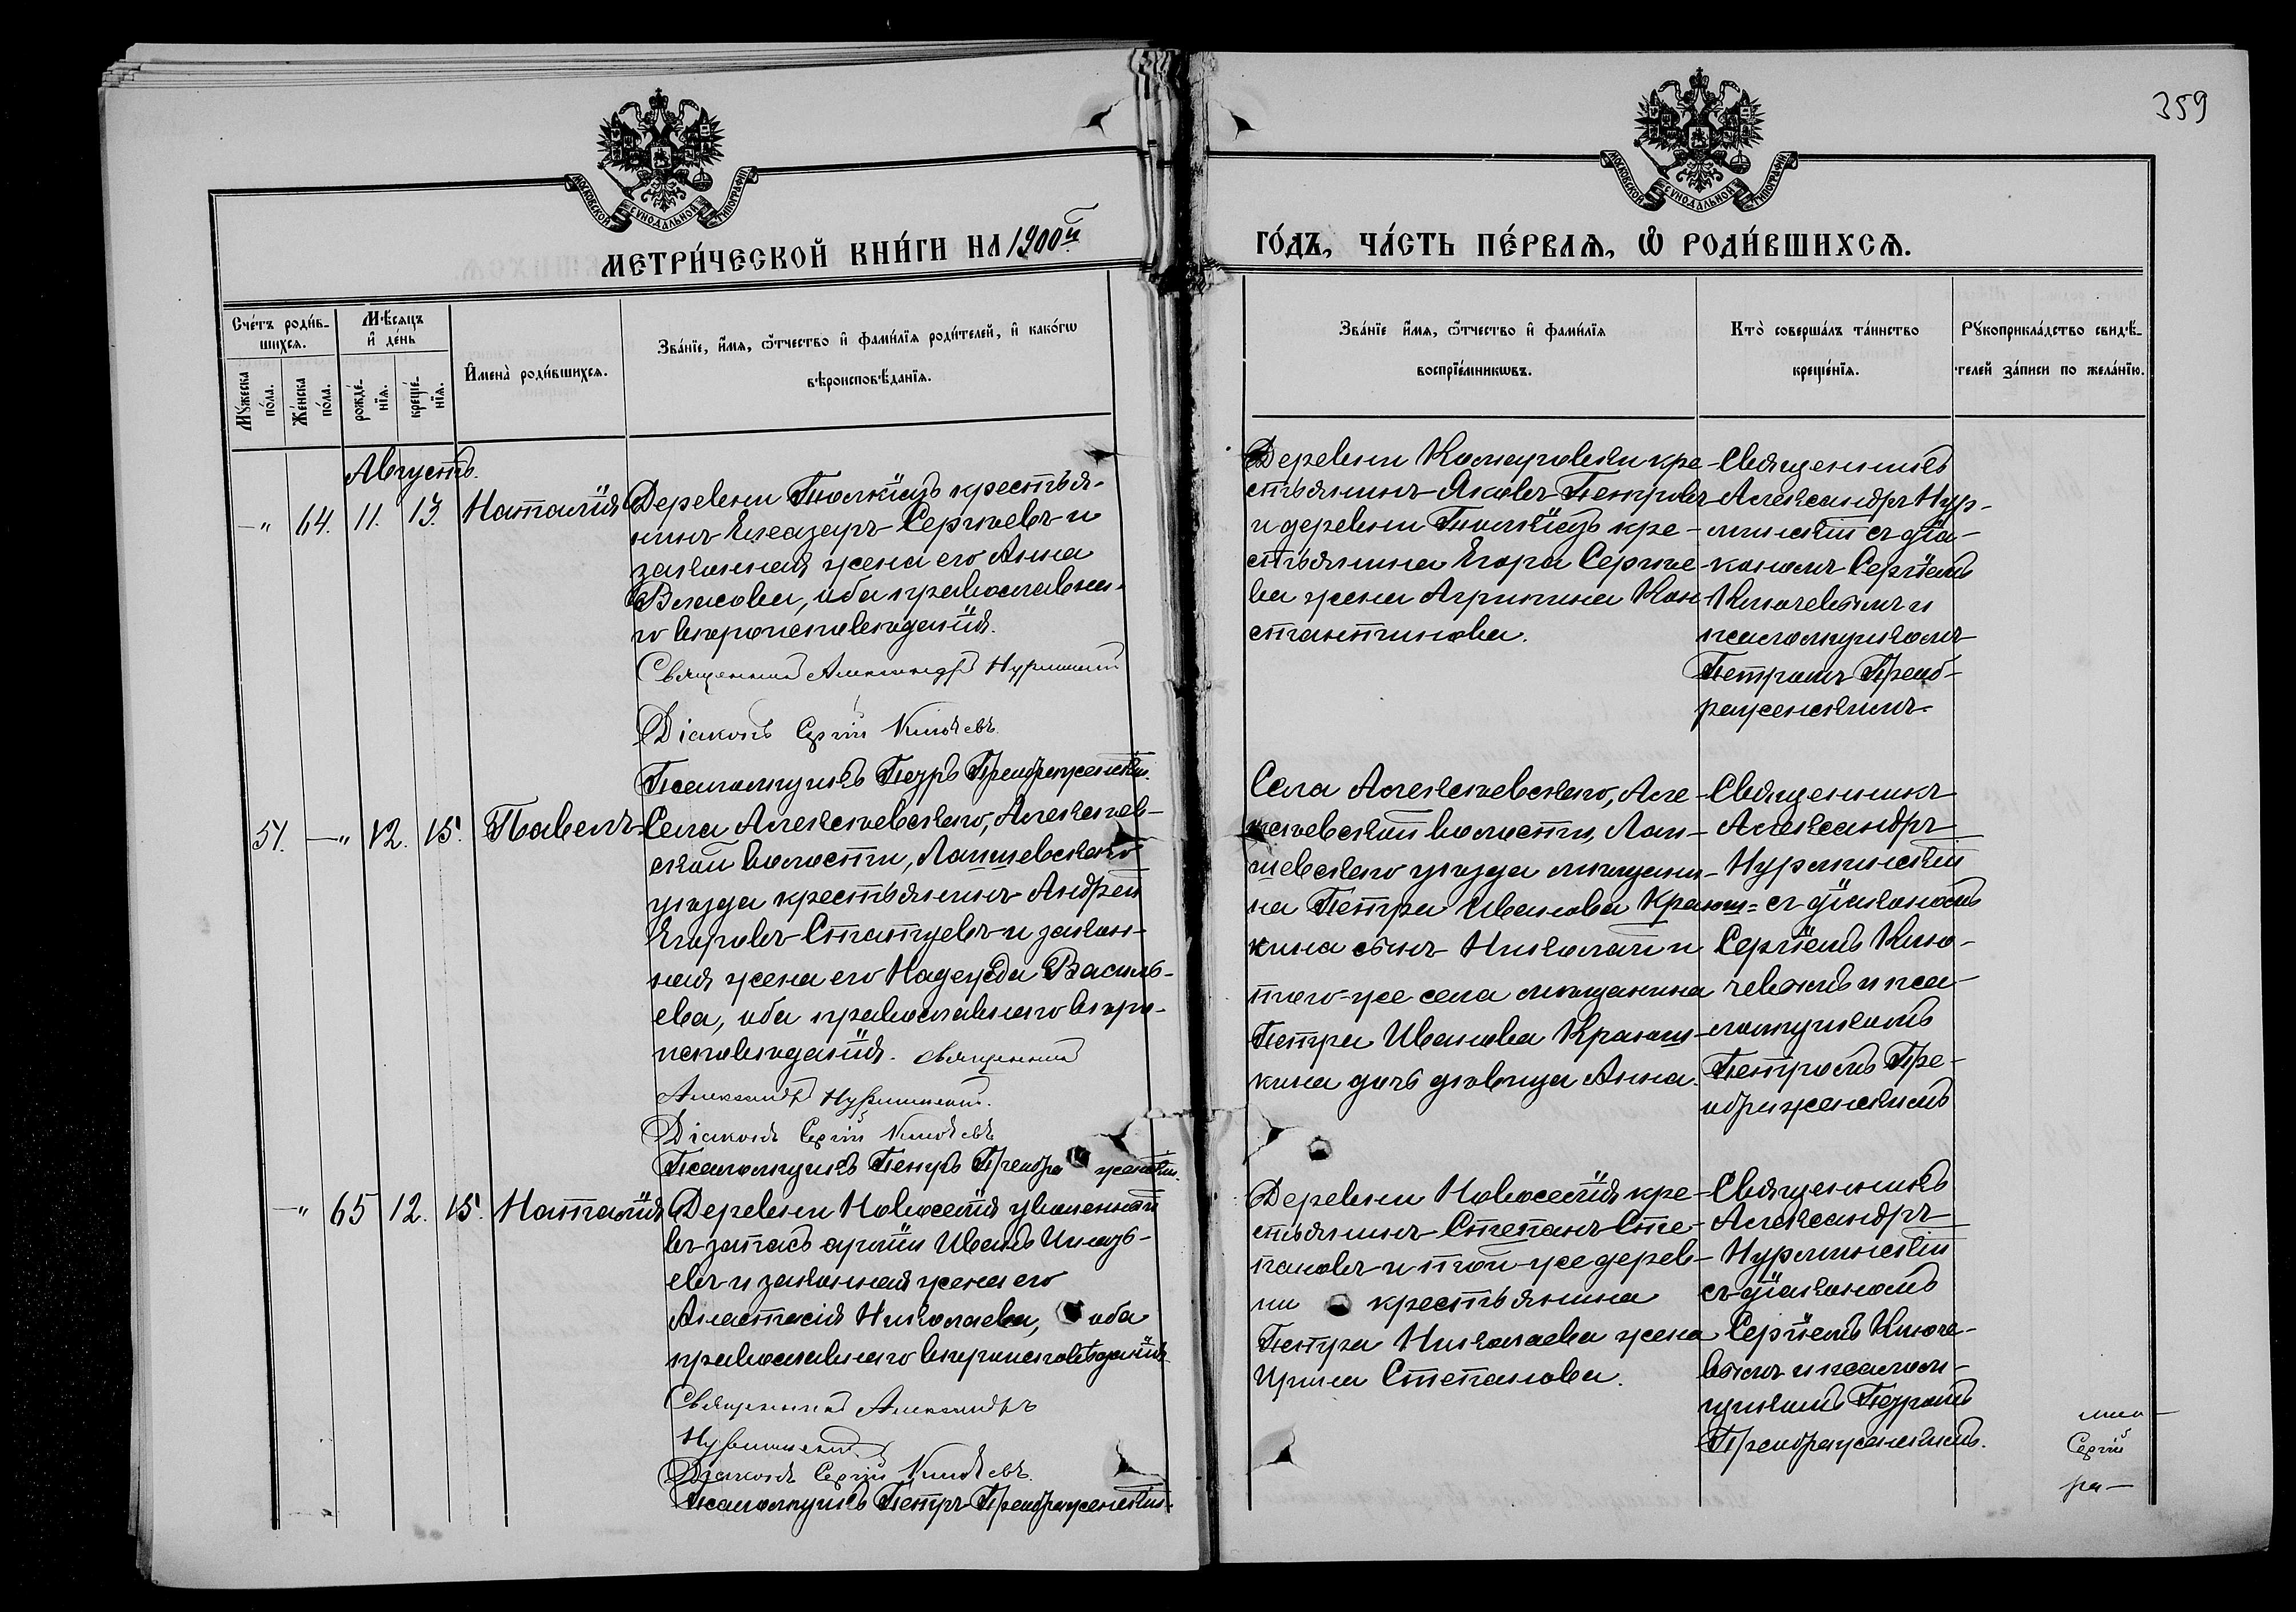 359
МОСКОВСКОЙ СУНОДАЛЬНОЙ ТИПОГРАФІИ
МОСКОВСКОЙ СУНОДАЛЬНОЙ ТИПОГРАФІИ
МЕТРИ́ЧЕСКОЙ КНИ́ГИ НА 1900й
ГО́ДЪ, ЧА́СТЬ ПЕ́РВАѦ, Ѡ҆ РОДИ́ВШИХСѦ.
Сче́тъ роди́в-
шихсѧ.
Мꙋжеска
по́ла.
Же́нска
по́ла.
Мѣ́сѧцъ
и҆ де́нь
рожде́-
нїѧ.
креще́-
нїѧ.
И҆мена̀ роди́вшихсѧ.
Зва́нїе, и҆́мѧ, ѻ҆́тчество и҆ фами́лїѧ роди́телей, и҆ како́гѡ
вѣроисповѣ́данїѧ.
Зва́нїе и҆́мѧ, ѻ҆́тчество и҆ фами́лїѧ
воспрїе́мникѡвъ.
Кто̀ соверша́лъ та́инство
креще́нїѧ.
Рꙋкоприкла́дство свидѣ́-
телей за́писи по жела́нїю.
Августъ.
-" 64. 11. 13. Наталія
Деревни Тюлкїязъ крестья-
нинъ Елеазаръ Сергѣевъ и
законная жена его Анна
Власова, оба православна-
го вѣроисповѣданія.
Священникъ Александръ Нурминскій
Діаконъ Сергій Ключевъ.
Псаломщикъ Петръ Преображенскій.
Деревни Комаровки кре-
стьянинъ Яковъ Петровъ
и деревни Тюлкїязъ кре-
стьянина Егора Сергѣе-
ва жена Агрипина Кон-
стантинова.
Священникъ
Александръ Нур-
минскій съ діа-
кономъ Сергіемъ
Ключевымъ и
псаломщикомъ
Петромъ Преоб-
раженскимъ.
51. -" 12. 15. Павелъ.
Села Алексѣевскаго, Алексѣев-
ской волости, Лаишевскаго
уѣзда крестьянинъ Андрей
Егоровъ Статуевъ и закон-
ная жена его Надежда Василь-
ева, оба православнаго вѣро-
исповѣданія. Священникъ
Александръ Нурминскій.
Діаконъ Сергій Ключевъ
Псаломщикъ Петръ Преображенскій.
Села Алексѣевскаго, Але-
ксѣевской волости, Лаи-
шевскаго уѣзда мѣщани-
на Петра Иванова Краюш-
кина сынъ Николай и
того-же села мѣщанина
Петра Иванова Краюш-
кина дочь дѣвица Анна.
Священникъ
Александръ
Нурминскій
съ діакономъ
Сергіемъ Клю-
чевымъ и пса-
ломщикомъ
Петромъ Пре-
ображенскимъ
-" 65 12. 15. Наталія
Деревни Новоселія уволенный
въ запасъ арміи Иванъ Игнать-
евъ и законная жена его
Анастасія Николаева, оба
православнаго вѣроисповѣданія.
Священникъ Александръ
Нурминскій.
Діаконъ Сергій Ключевъ.
Псаломщикъ Петръ Преображенскій.
Деревни Новоселія кре-
стьянинъ Степанъ Сте-
пановъ и той-же дерев-
ни крестьянина
Петра Николаева жена
Ирина Степанова.
Священникъ
Александръ
Нурминскій
съ діакономъ
Сергіемъ Ключе-
вымъ и псалом-
щикомъ Петромъ
Преображенскимъ.
Сергій
ра-